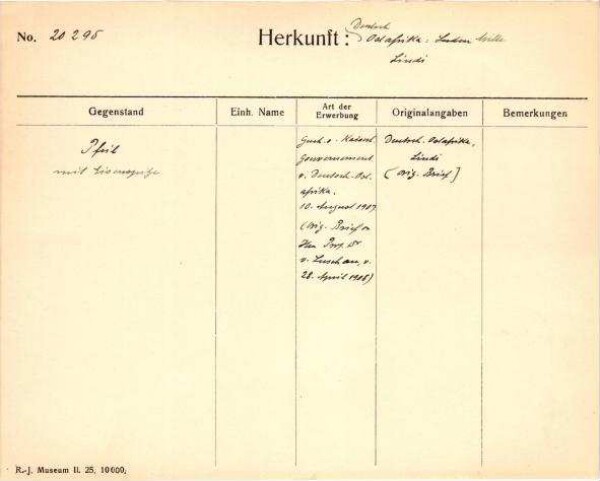 No. 20 295
Herkunft: Deutsch
Ostafrika.
Lindi
Gegenstand
Einh. Name
Art der
Erwerbung
Originalangaben
Bemerkungen
Pfeil
mit Eisenspitze
Gesch. v. Kaiserl.
Gouvernement
v. Deutsch-Ost-
afrika.
10. August 1907
(Orig. Brief v.
Hrn Prof. Dr
v. Luschan, v.
28. April 1908)
Deutsch-Ostafrika,
Lindi
(Orig. Brief)
R.-J. Museum II. 25. 10000.